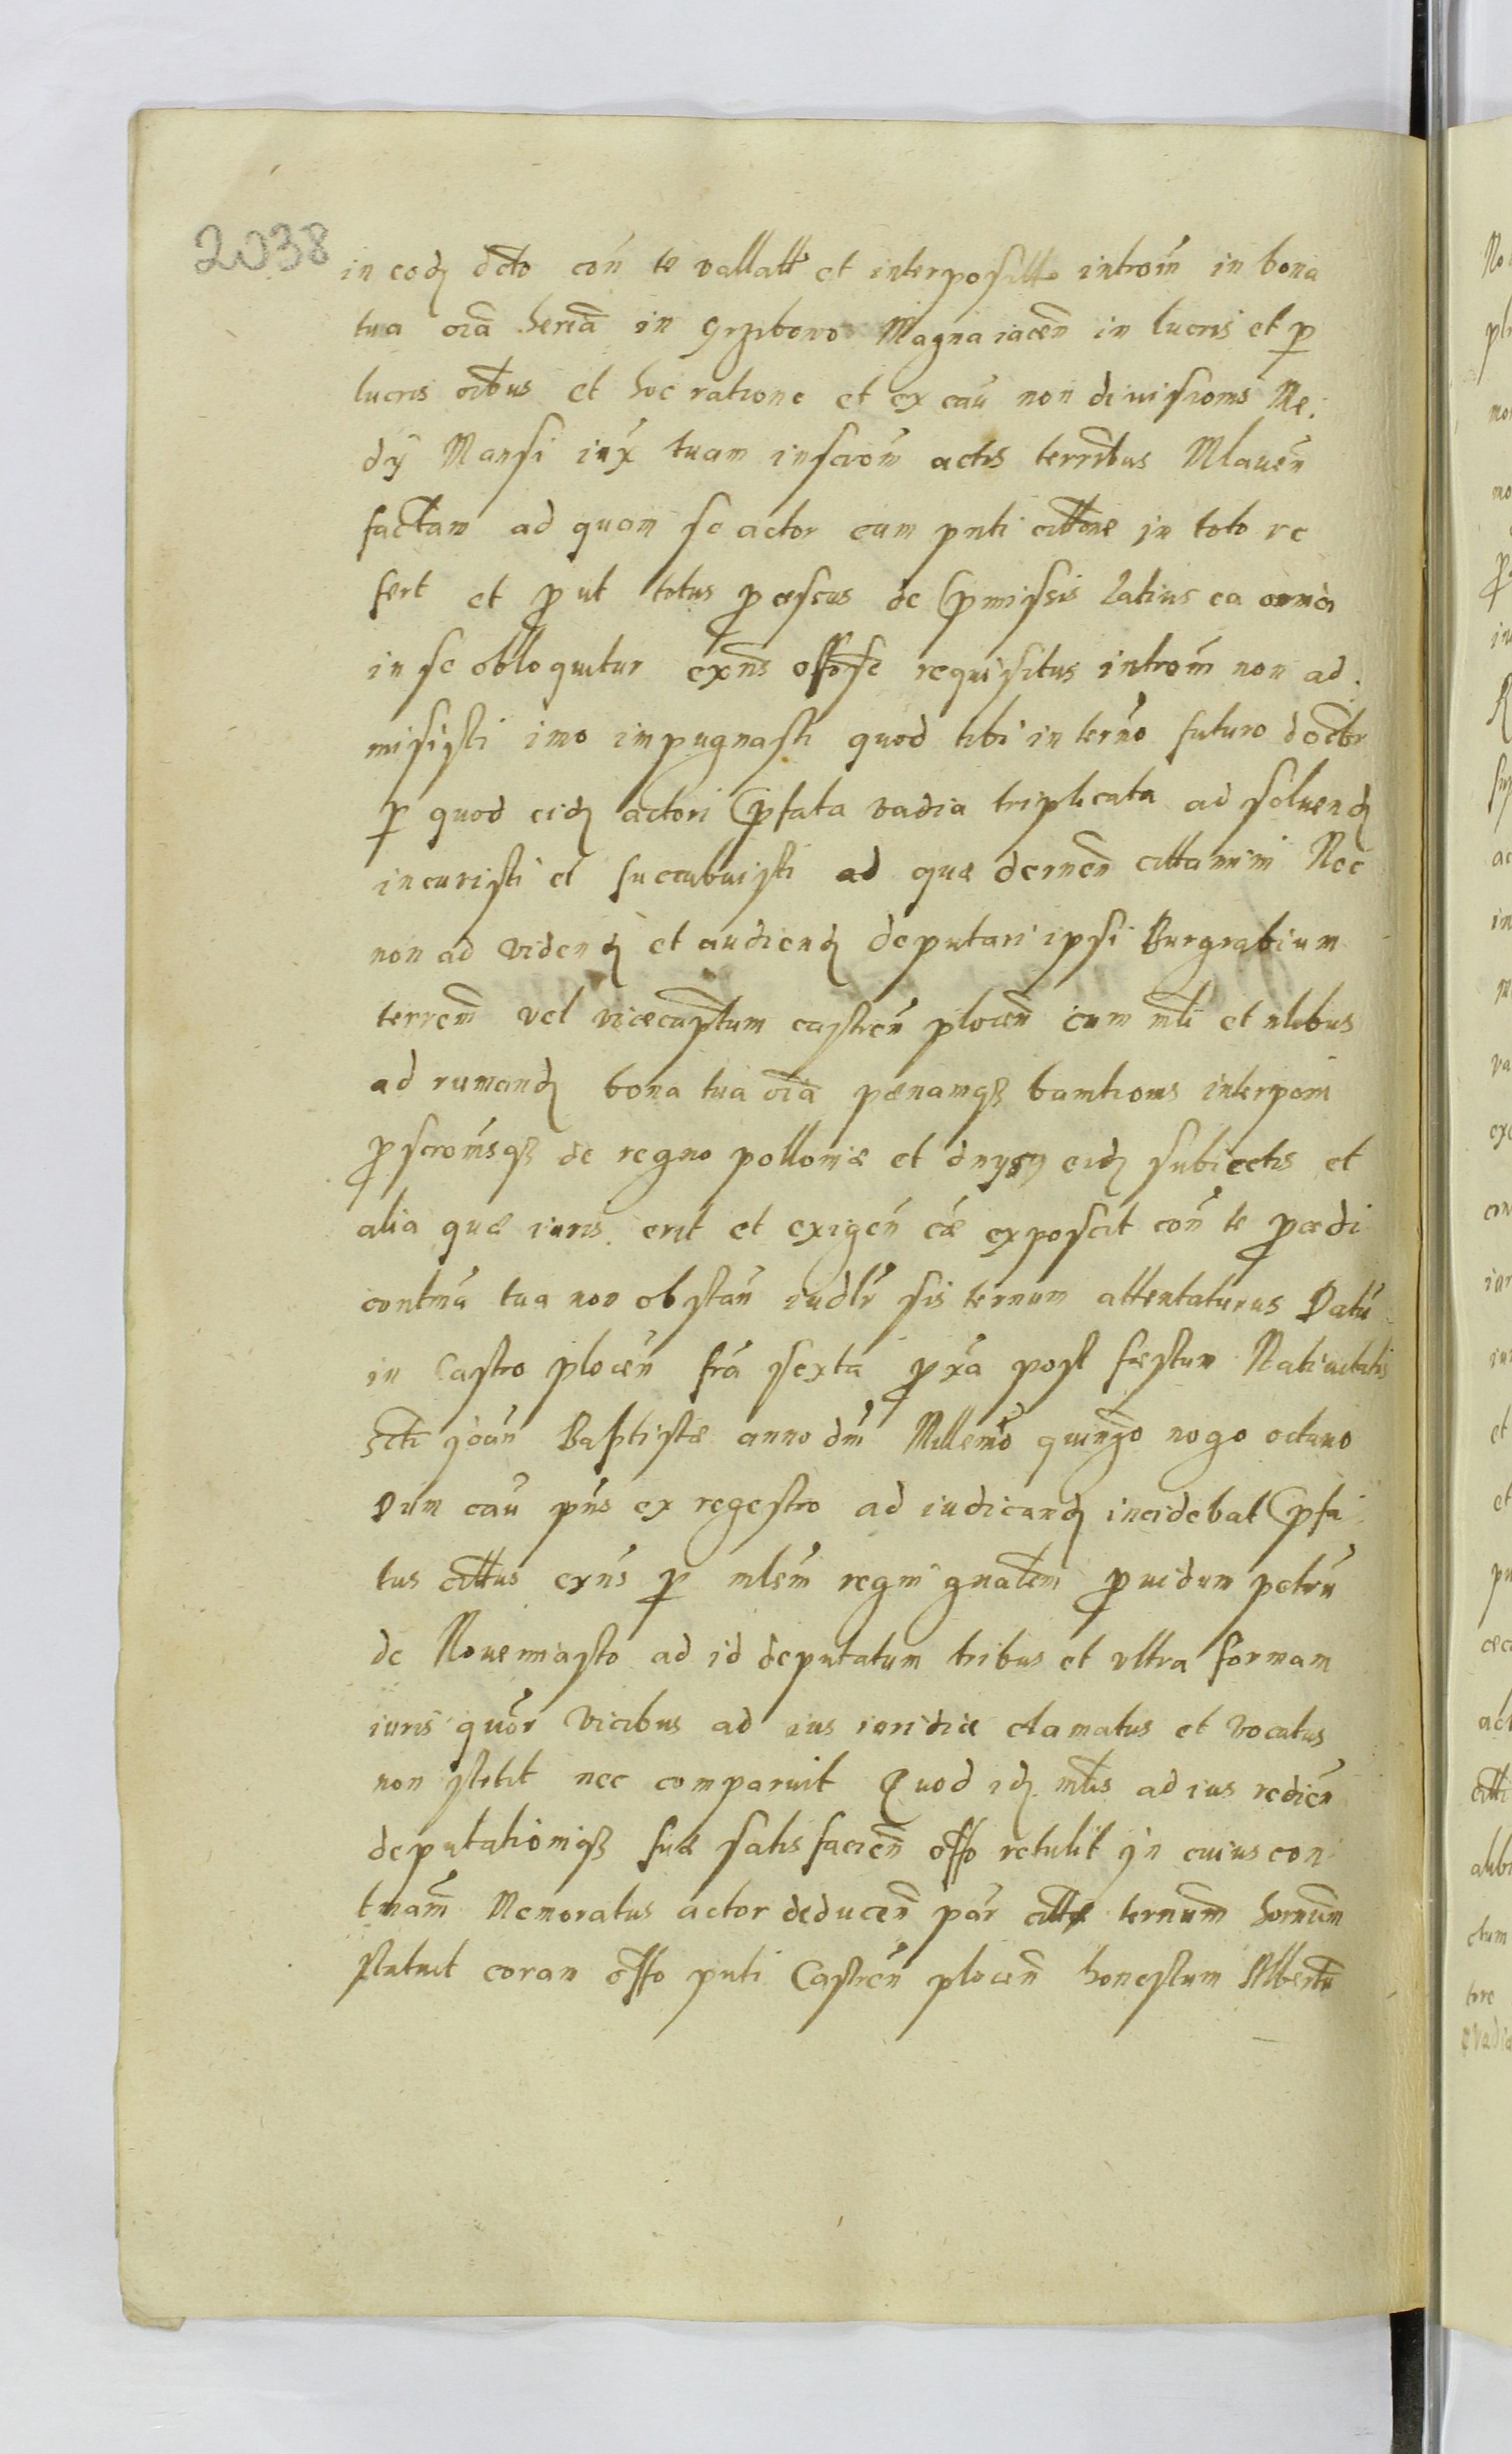 2038
in eodꝫ dcto con̄ te vallatt et interposittо introm̄ in bona
tua oīa heria in Grzibowo Magna iaceñ in lucris et p
lucris oībus et hoc ratione et ex cau̅ non divisionis Me.
dÿ Mansi iux tuam inscrom̄ actis terrīībus Mlaueñ
factam ad quam se actor cum pnti citt̄one in toto re
fert et ꝓut totus ꝓcessus de Pmissis latius ea omnia
in se obloquitur exn̄s offose requisitus introm̄ non ad.
misisti imo inpugnasti quod tibi in termō futuro docētr
p quod eidꝫ actori Pfata vadia triplicata ad soluendꝫ
incuristi et succubuisti ad quæ decrneñ cittamini Nec
non ad videndꝫ et audiendꝫ deputari ipsi Burgrabium
terrem̄ vel vicecaptum castreñ ploceñ cum mli et nlibus
ad rumandꝫ bona tua oīa pænamqꝫ banitionis interponi
ꝓscrom̄sqꝫ de regno polloniæ et dnysqꝫ eidꝫ subiectis et
alia quæ iuris erit et exigeñ cæ exposcit con̄ te ꝓcedi
contmā tua non obstan̄ iudlr̄ sis ternum attentaturus Datū
in Castro ploceñ frā sexta ꝓxā post festum Natiuitatis
Scti joān Baptistæ anno dni Millemō quingō nogo octavo
Dum cau̅ pn̄s ex regestro ad iudicandꝫ incidebat Pfa
tus cittus exn̄s p mlem̄ regni gnalem ꝓuidum petrū
de Nouemiasto ad id deputatum tribus et vltra formam
iuris quōr vicibus ad ius iuridice clamatus et vocatus
non stetit nec comparuit Quod idꝫ mlis ad ius redien̄
deputationiqꝫ suæ satisfacien̄ offo retulit jn cuius con
tmam̄ Memoratus actor deducen̄ par citt̄æ ternum hornūm
statuit coram offo pnti Castreñ ploceñ honestum Albertū